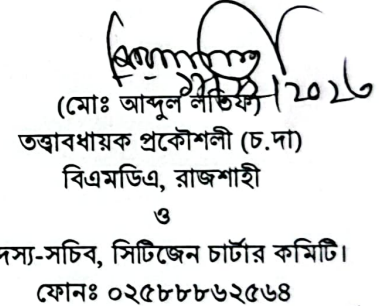 (মোঃ আব্দুল লতিফ)
তত্ত্বাবধায়ক প্রকৌশলী (চ.দা)
বিএমডিএ, রাজশাহী
ও
সদস্য-সচিব, সিটিজেন চার্টার কমিটি।
ফোনঃ ০২৫৮৮৮৬২৫৬৪